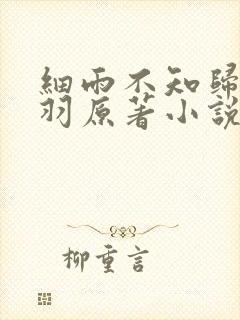 細雨不知歸
羽原著小說
柳重言